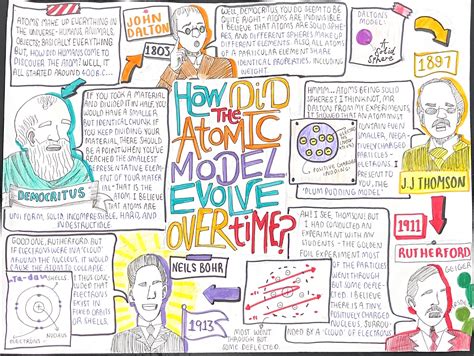 ATOMS MAKE UP EVERYTHING IN
THE UNIVERSE - HUMANS, ANIMALS,
OBJECTS: BASICALLY EVERYTHING!
BUT, HOW DID HUMANS COME
TO DISCOVER THE ATOM? WELL, IT
ALL STARTED AROUND 400 B.C....
JOHN
DALTON
1803
WELL, DEMOCRITUS, YOU DO SEEM TO BE
QUITE RIGHT - ATOMS ARE INDIVISIBLE.
I BELIEVE THAT ATOMS ARE SOLID SPHE-
RES, AND DIFFERENT SPHERES MAKE UP
DIFFERENT ELEMENTS. ALSO, ALL ATOMS
OF A PARTICULAR ELEMENT SHARE
IDENTICAL PROPERTIES, INCLUDING
WEIGHT.
DALTON'S
MODEL:
Solid
Sphere
1897
HOW DID
THE
ATOMIC
MODEL
EVOLVE
OVER TIME?
IF YOU TOOK A MATERIAL
AND DIVIDED IT IN HALF, YOU
WOULD HAVE A SMALLER
BUT IDENTICAL CHUNK. IF
YOU KEEP DIVIDING YOUR
MATERIAL THERE SHOULD
BE A POINT WHEN YOU'VE
REACHED THE SMALLEST
REPRESENTATIVE ELEM-
ENT OF YOUR MATER-
IAL - THAT IS THE
ATOM. I BELIEVE
THAT ATOMS ARE
UNIFORM, SOLID, INCOMPRESSIBLE, HARD, AND
INDESTRUCTIBLE
DEMOCRITUS
HMMM... ATOMS BEING SOLID
SPHERES? I THINK NOT, MR
DALTON. FROM MY EXPERIMENTS,
IT SHOWED THAT AN ATOM MUST
CONTAIN
NEGA-
TIVELY CHARGED
PARTICLES -
ELECTRONS.
I PRESENT
TO YOU, THE
"PLUM PUDDING MODEL"
POSITIVE CHARGE
(PUDDING)
J.J THOMSON
1911
RUTHERFORD
GEIGER
AH! I SEE, THOMSON, BUT
I HAD CONDUCTED AN
EXPERIMENT WITH MY
STUDENTS - THE GOLDEN
FOIL EXPERIMENT. MOST
OF THE PARTICLES
WENT THROUGH
BUT SOME DEF-
LECTED. I BELIEVE
THERE IS A TINY,
POSITIVELY CHARGED
NUCLEUS, SURROU-
NDED BY A 'CLOUD' OF ELECTRONS
MOST WENT
THROUGH BUT
SOME DEFLECTED.
NEILS BOHR
1913
GOOD ONE, RUTHERFORD. BUT
IF ELECTRONS WERE IN A 'CLOUD'
AROUND THE NUCLEUS, IT WOULD
CAUSE THE ATOM TO COLLAPSE.
THUS, I CONC-
LUDED THAT
ELECTRONS
EXIST IN
FIXED ORBITS
OR SHELLS.
Ta-da!
SHELLS
ELECTRONS
NUCLEUS